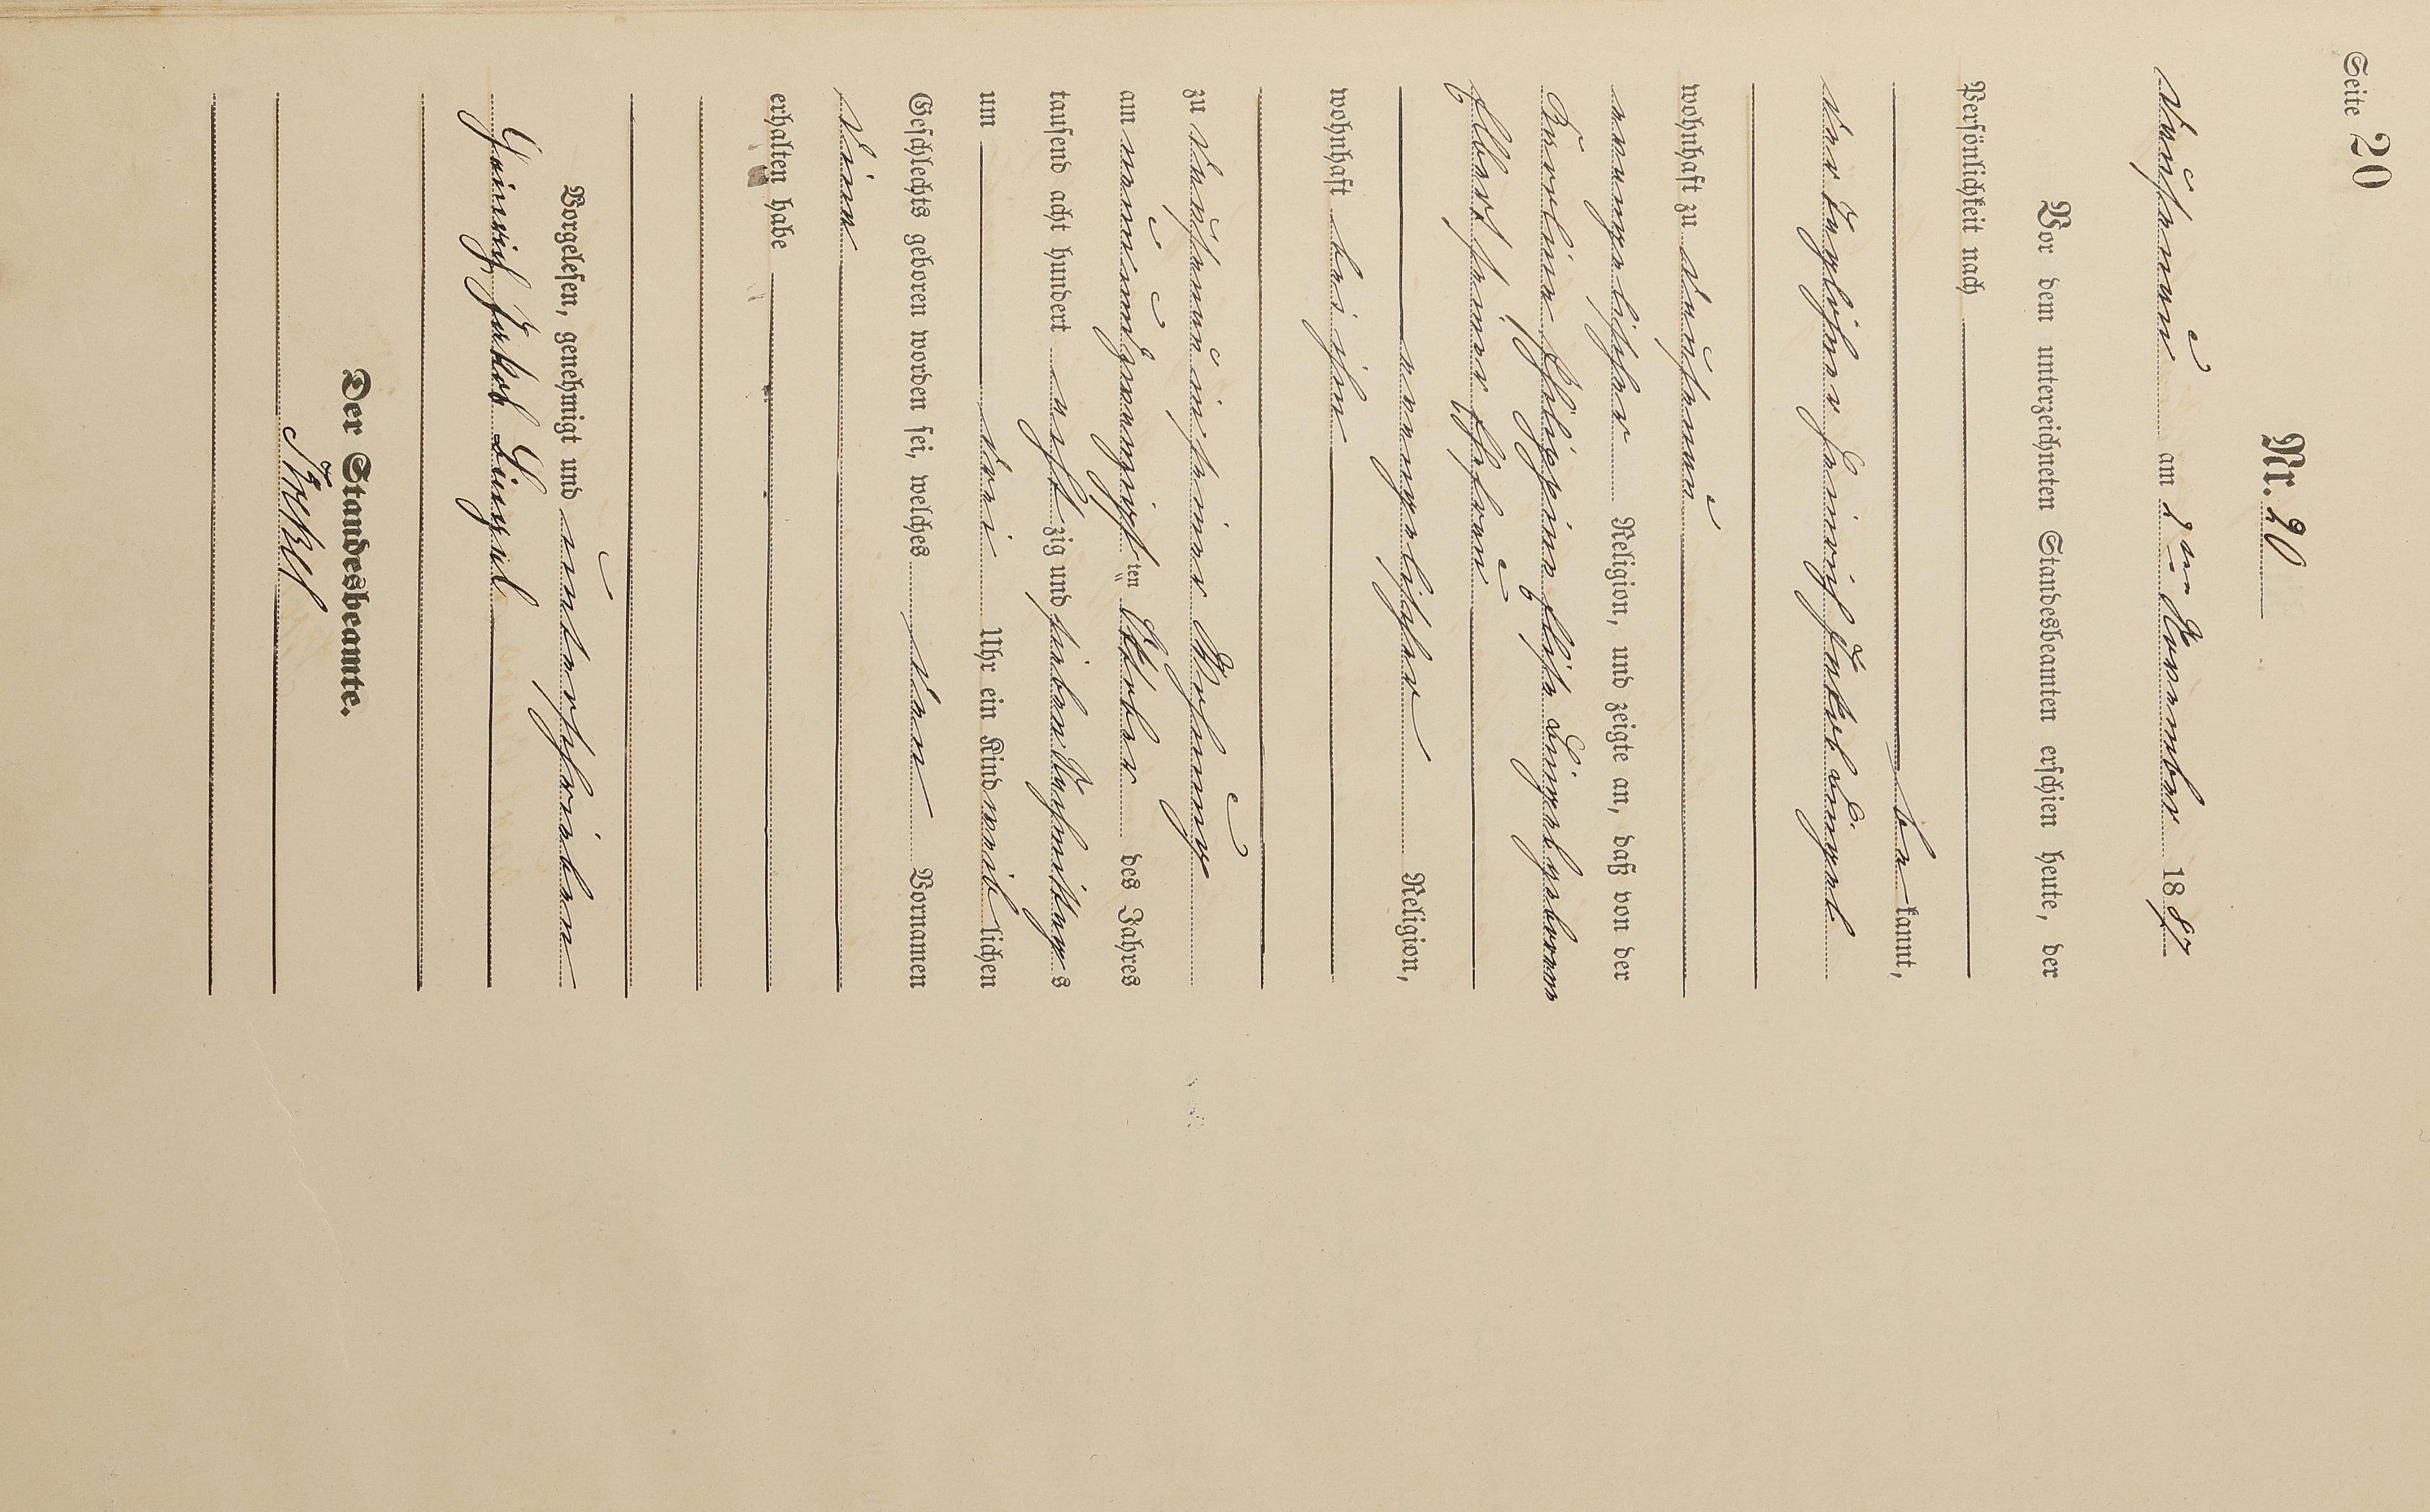 Seite 20
Nr. 20
am 2ten November 1887
Vor dem unterzeichneten Standesbeamten erschien heute, der
Persönlichkeit nach
be kannt,
der Taglöhner Heinrich Jakob Dingel
wohnhaft zu
evangelischer Religion, und zeigte an, daß von der
Karoline Philippine Elise Dingel geborene
Ebert seiner Ehefrau
evangelischer Religion,
wohnhaft bei ihm
zu in seiner Wohnung
am neunundzwanzigsten ten Oktober des Jahres
tausend acht hundert acht zig und sieben Vormittags
um drei Uhr ein Kind weib lichen
Geschlechts geboren worden sei, welches den Vornamen
Lina
erhalten habe
Vorgelesen, genehmigt und unterschrieben
Heinrich Jakob Dingel
Der Standesbeamte.